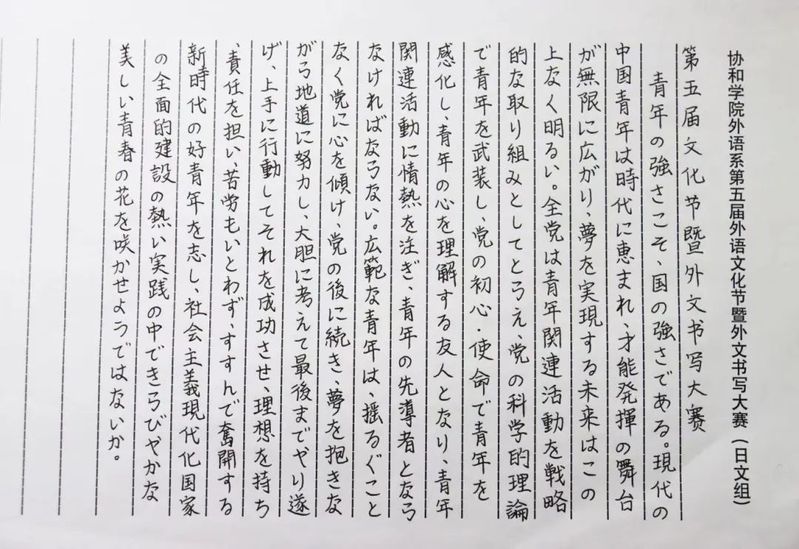 协和学院外语系第五届外语文化节暨外文书写大赛（日文组）
第五届文化节暨外文书写大赛
青年の強さこそ、国の強さである。現代の
中国青年は時代に恵まれ、才能発揮の舞台
が無限に広がり、夢を実現する未来はこの
上なく明るい。全党は青年関連活動を戦略
的な取り組みとしてとらえ、党の科学的理論
で青年を武装し、党の初心・使命で青年を
感化し、青年の心を理解する友人となり、青年
関連活動に情熱を注ぎ、青年の先導者となら
なければならない。広範な青年は、揺るぐこと
なく党に心を傾け、党の後に続き、夢を抱きな
がら地道に努力し、大胆に考えて最後までやり遂
げ、上手に行動してそれを成功させ、理想を持ち
、責任を担い、苦労もいとわず、すすんで奮闘する
新時代の好青年を志し、社会主義現代化国家
の全面的建設の熱い実践の中できらびやかな
美しい青春の花を咲かせようではないか。